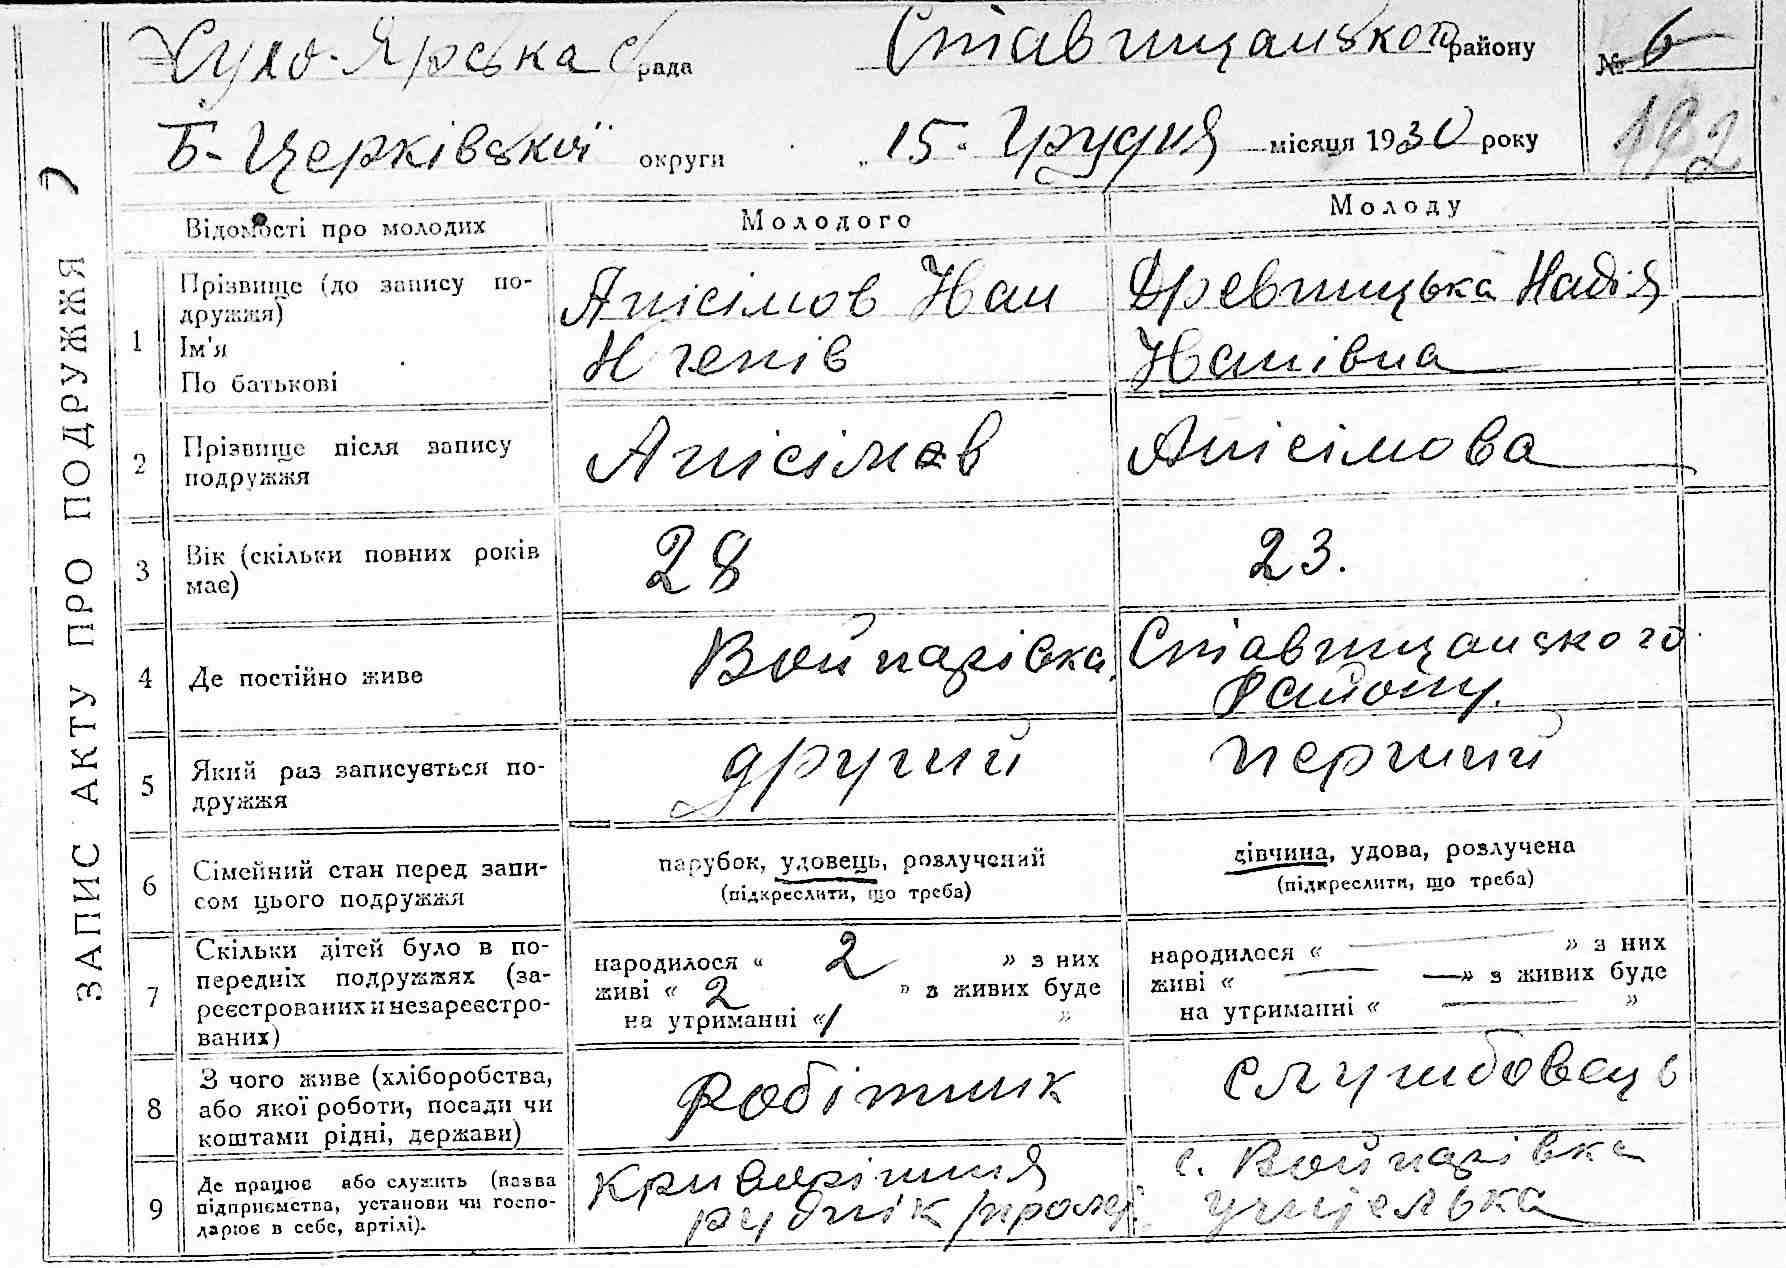 Сухо-Ярська с/рада Ставищанського району № 6
Б-Церківської округи „15" Грудня місяця 1930 року 192
ЗАПИС АКТУ ПРО ПОДРУЖЖЯ
Відомості про молодих Молодого Молоду
1 Прізвище (до запису по-
дружжя)
Ім'я
По батькові
Анісімов Іван
Ігенів
Древницька Надія
Іванівна
2 Прізвище після запису
подружжя
Анісімов Анісімова
3 Вік (скільки повних років
має)
28 23.
4 Де постійно живе
Войнарівка, Ставищанського
району.
5 Який раз записується по-
дружжя
другий перший
6 Сімейний стан перед запи-
сом цього подружжя
парубок, удовець, розлучений
(підкреслити, що треба)
дівчина, удова, розлучена
(підкреслити, що треба)
7 Скільки дітей було в по-
передніх подружжях (за-
реєстрованих и незареєстро-
ваних)
народилося « 2 » з них
живі « 2 » з живих буде
на утриманні « 1 »
народилося « — » з них
живі « — » з живих буде
на утриманні « — »
8 З чого живе (хліборобства,
або якої роботи, посади чи
коштами рідні, держави)
робітник службовець
9 Де працює або служить (назва
підприємства, установи чи госпо-
дарює в себе, артілі).
Криворіжжя
руднік
с. Войнарівка
учителька